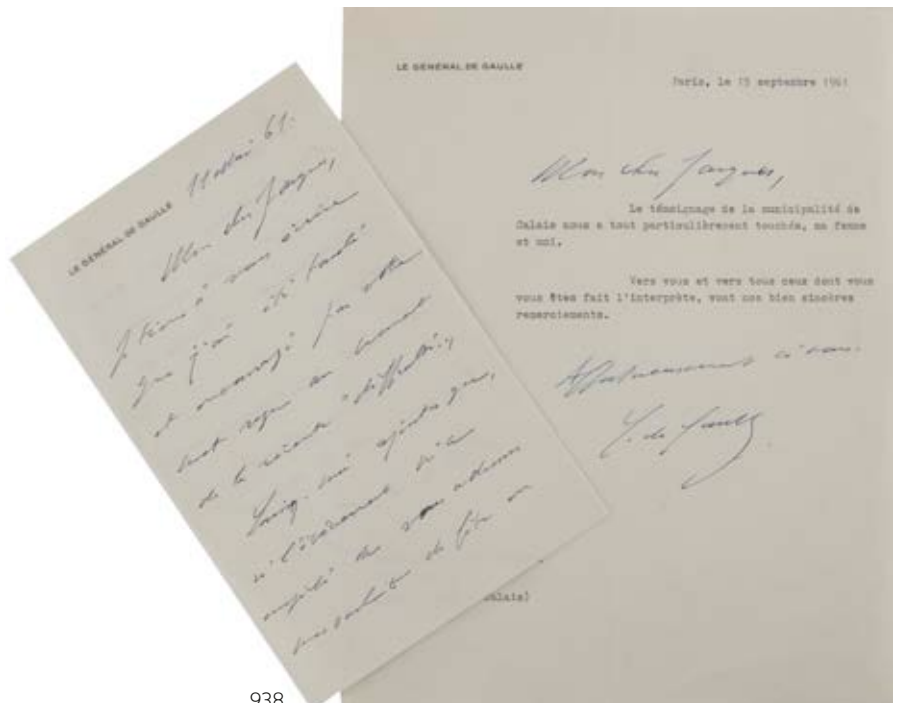 LE GÉNÉRAL DE GAULLE
11 mai 61.
Mon cher Jacques,
Je tiens à vous écrire
que j'ai été touché
et encouragé par votre
mot reçu au moment
de la récente "difficulté".
ajouter que,
si l'événement m'a
empêché de vous adresser
LE GÉNÉRAL DE GAULLE
Paris, le 15 septembre 1961
Mon cher Jacques,
Le témoignage de la municipalité de
Calais nous a tout particulièrement touchés, ma femme
et moi.
Vers vous et vers tous ceux dont vous
vous êtes fait l'interprète, vont nos bien sincères
remerciements.
Affectueusement à vous.
C. de Gaulle
Calais)
938